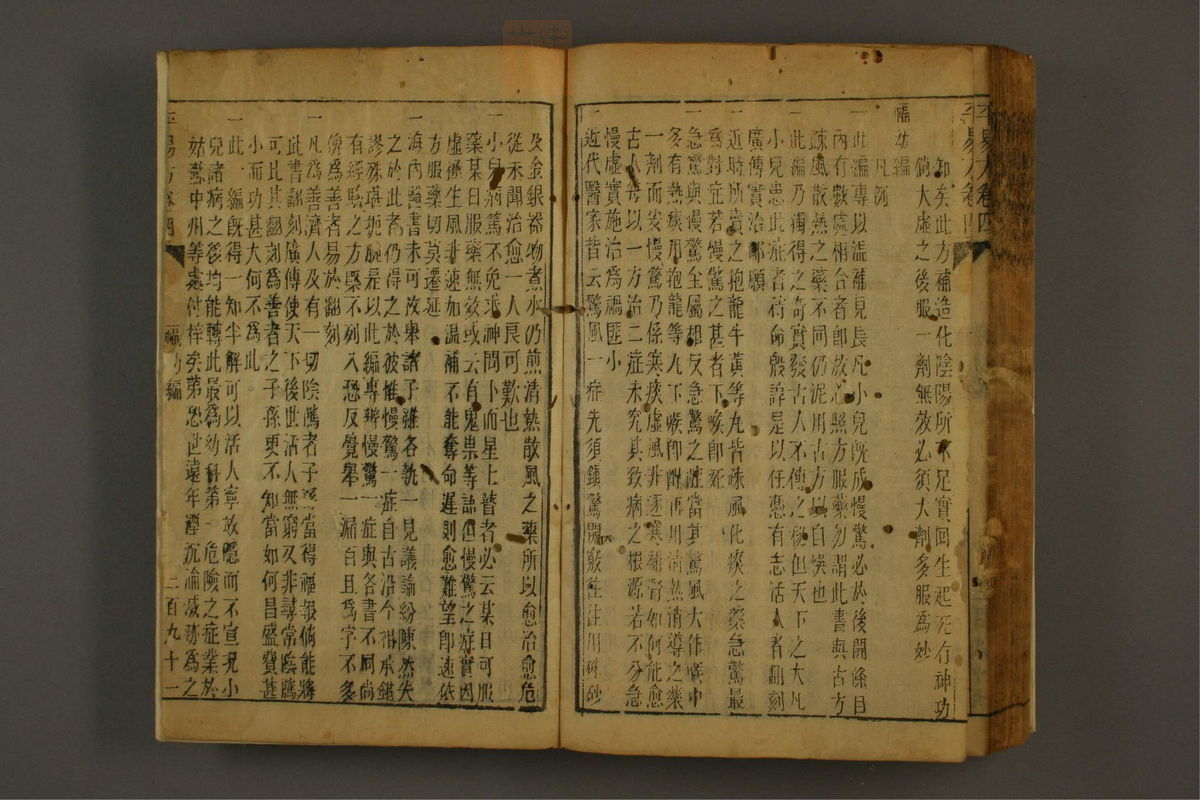 平易方卷四
知矣此方補造化陰陽所不足實回生起死有神功
倘大虛之後服一劑無效必須大劑多服為妙
福幼編
凡例
一此編專以溫補見長凡小兒既成慢驚必於後開條目
內有數處相合者即放心照方服藥勿謂此書與古方
疎風散熱之藥不同仍泥用古方以自悞也
一此編乃獨得之奇實發古人不傳之秘但天下之大凡
小兒患此症者若命殷諱是以任憑有志活人者翻刻
廣傳實治鄙願
一近時所賣之抱龍牛黃等丸皆疎風化痰之藥急驚最
為對症若慢驚之甚者下喉即死
一急驚與慢驚全屬相反急驚之症當其驚風大作喉中
多有熱痰用抱龍等丸下喉即醒再用清熱消導之藥
一劑而安慢驚乃係寒痰虛風非逐寒補腎如何能愈
古人每以一方治二症未究其致病之根源若不分急
慢虛實施治為禍匪小
一近代醫家皆云驚風一症先須鎮驚開竅往往用硃砂
及金銀器物煮水仍煎清熱散風之藥所以愈治愈危
從未聞治愈一人良可歎也
一小兒病篤不免求神問卜而星上瞽者必云某日可服
藥某日服藥無效或云有鬼祟等語但慢驚之症實因
虛極生風非速加溫補不能奪命遲則愈難望即速依
方服藥切莫遷延
一海內醫書未可枚舉諸子雖各執一見議論紛陳然失
之於此者仍得之於彼惟慢驚一症自古沿今相承錯
謬殊堪扼腕是以此編專辨慢驚一症與各書不同尚
有經驗之方槩不列入恐反覺舉一漏百且為字不多
俾為善者易於翻刻
一凡為善濟人及有一切陰隲者子孫當得福報倘能將
此書翻刻廣傳使天下後世活人無窮又非尋常陰隲
可比其翻刻為善者之子孫更不知當如何昌盛費甚
小而功甚大何不為此
一此編既得一知半解可以活人寧敢隱而不宣況小
兒諸病之後均能轉此最為幼科第一危險之症業於
姑蘇中州等處付梓矣第恐世遠年湮沉淪滅跡為之
平易方卷四
福幼編
二百九十一